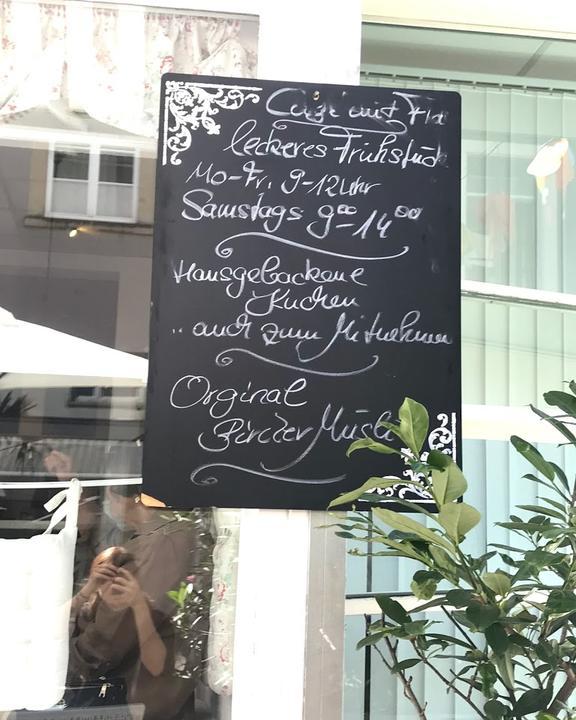 Café mit Flair
leckeres Frühstück
Mo-Fr. 9-12 Uhr
Samstags 9⁰⁰-14⁰⁰
Hausgebackene
Kuchen
.. auch zum Mitnehmen
Orginal
Bircher Müsli